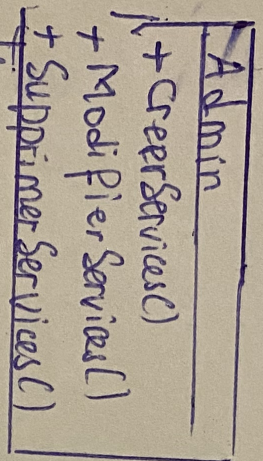 Admin
+ CreerServices()
+ ModifierServices()
+ SupprimerServices()